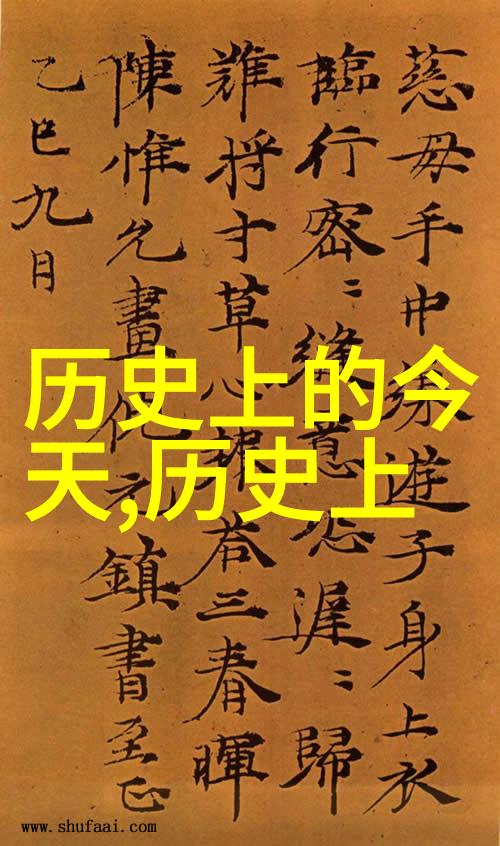 慈母手中線遊子身上衣
臨行密〻縫意恐遲〻歸
難将寸草心報荅三春暉
陳惟允畫倪元鎮書至正
乙巳九月
历史上的今
天,历史上
www.shufaai.com